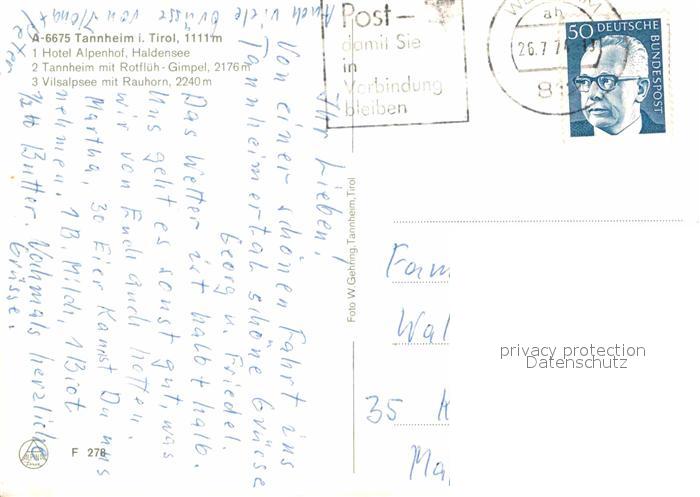 A-6675 Tannheim i. Tirol, 1111 m
1 Hotel Alpenhof, Haldensee
2 Tannheim mit Rotflüh - Gimpel, 2176 m
3 Vilsalpsee mit Rauhorn, 2240 m
Post-
damit Sie
in
Verbindung
bleiben
26.7.74
50 DEUTSCHE BUNDESPOST
Ihr Lieben!
Von einer schönen Fahrt ins
Tannheimertal schöne Grüsse
Georg u. Friedel.
Das Wetter ist halbthalb.
Uns geht es sonst gut, was
wir von Euch auch hoffen.
Martha, 30 Eier kannst Du uns
nehmen, 1 B. Milch, 1 Brot
1/2 Butter. Nochmals herzliche
Grüsse.
Auch viele Grüsse von
Peter
Foto W. Gehring, Tannheim, Tirol
Fam
Wal
35
Ma
privacy protection
Datenschutz
F 278